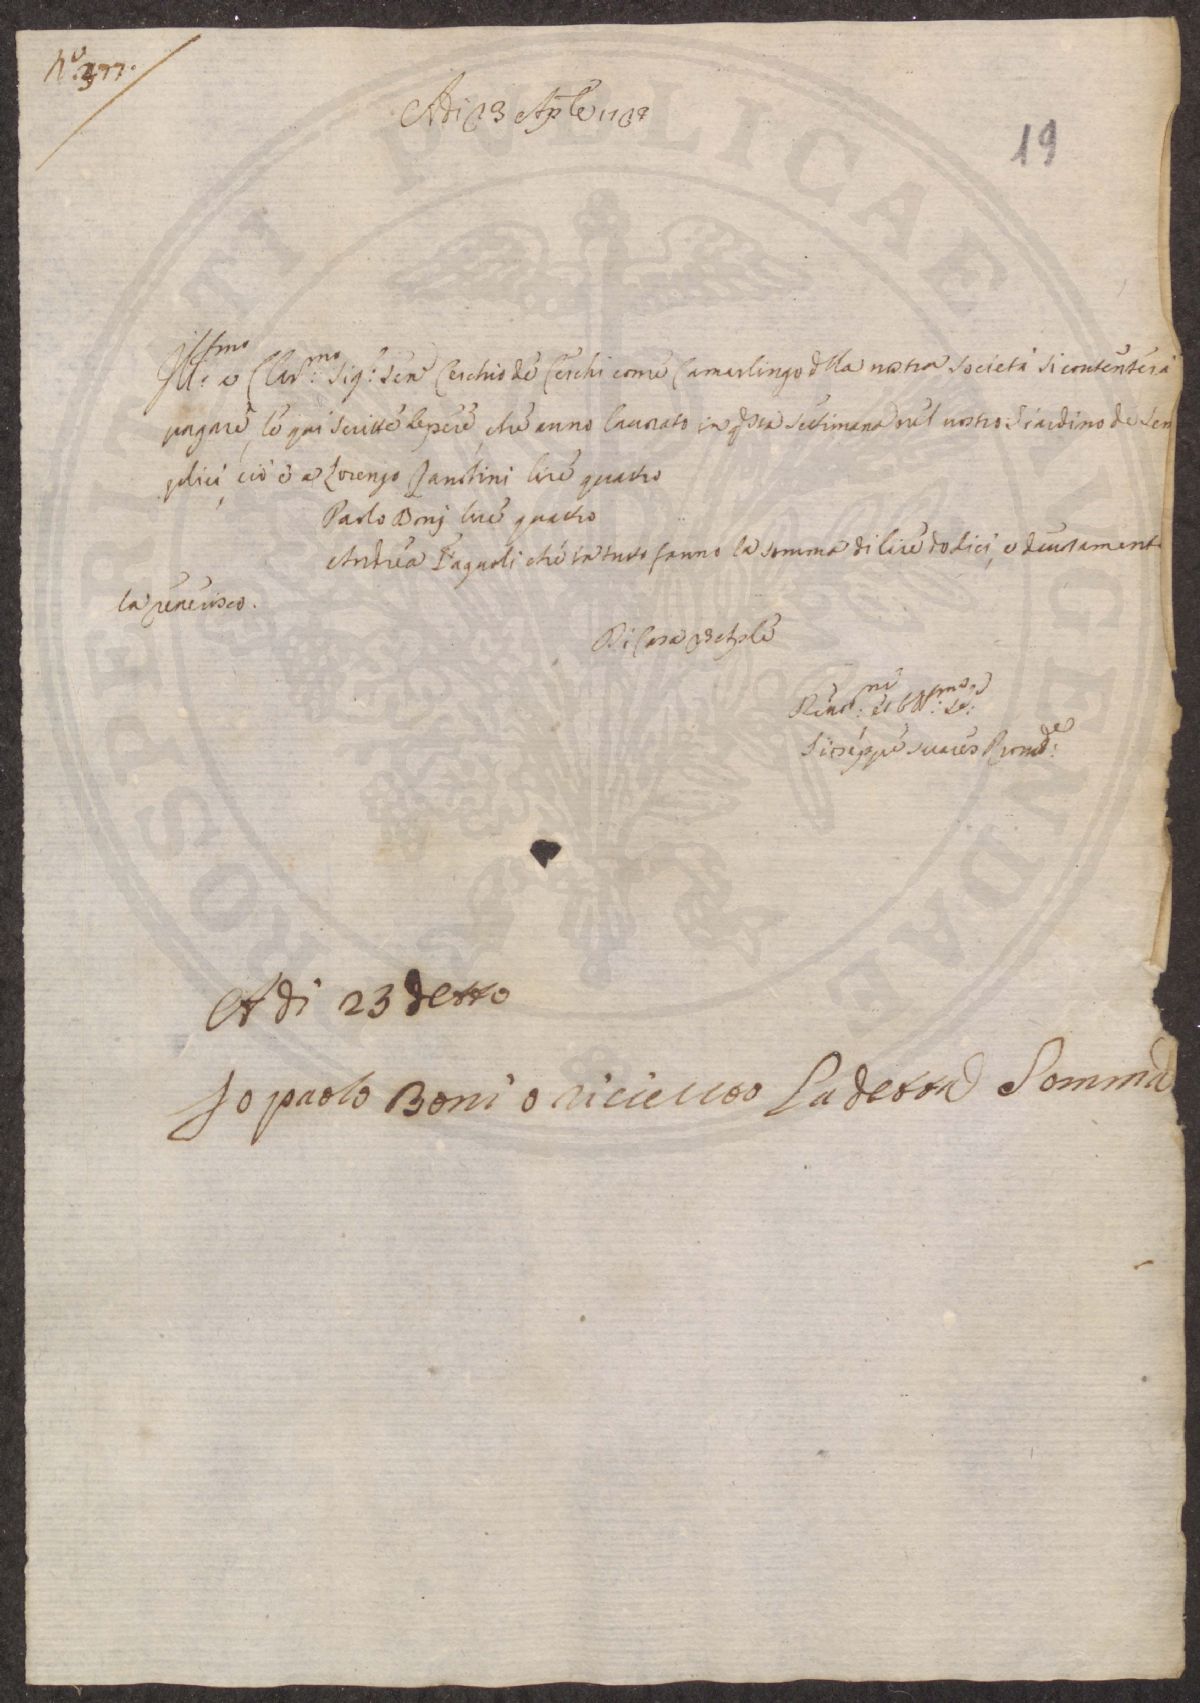 N.o 377.
Adi 23 Ap.le 1738
19
Ill.mo e Clar.mo Sig.r Sen.r Cerchio de Cerchi come Camarlingo della nostra società si contenterà
pagare le qui scritte opere, che anno lauorato in q.sta settimana nel nostro Giardino de Sen
plici, ciò è a Lorenzo Zanobini lire quatro
Paolo Bonj lire quatro
Andrea Pagnoli che in tutto fanno la somma di lire dodici, e deuotamente
la reuerisco.
Di Casa 23 Aple
Giuseppe Suares
Adi 23 detto
Jo paolo Boni o riceuuto La detta Somma
PUBLICAE